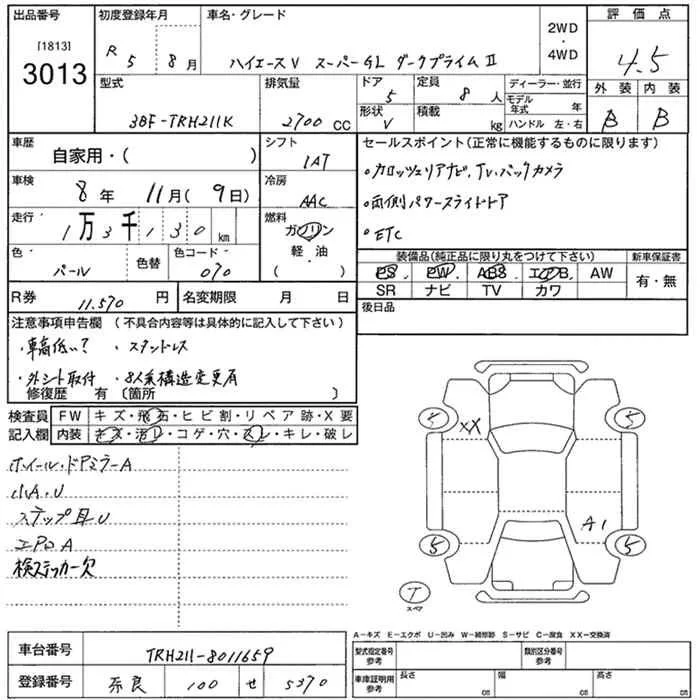 出品番号 初度登録年月 車名・グレード 2WD・4WD 評価点
[1813]
3013
R 5 8月 ハイエースV スーパーGL ダークプライムⅡ 4.5
型式 排気量 ドア 5 定員 8人 ディーラー・並行 外装 内装
3BF-TRH211K 2700 CC 形状 V 積載 kg モデル年式 年 B B
ハンドル 左・右
車歴 シフト セールスポイント(正常に機能するものに限ります)
自家用・( ) 1AT ・カロッツェリアナビ、TV、バックカメラ
車検 冷房 ・両側パワースライドドア
8年 11月(9日) AAC ・ETC
走行 燃料
1万3千130km ガソリン
軽・油
( )
色 色替 色コード 装備品(純正品に限り丸をつけて下さい) 新車保証書
パール 070 PS PW ABS エアB AW 有・無
SR ナビ TV カワ
R券 11.570円 名変期限 月 日 後日品
注意事項申告欄(不具合内容等は具体的に記入して下さい)
・車高低い? ・スタンドレス
・外シト取付 ・8人乗構造変更有
修復歴 有(箇所 )
検査員記入欄 FW キズ・飛石・ヒビ割・リペア跡・X要
内装 キズ・汚レ・コゲ・穴・スレ・キレ・破レ
ホイール・ドアミラーA
小A・U
ステップ耳U
エアロA
検ステッカー欠
5 XX 5
A1
5 5
T
スペア
A-キズ E-エクボ U-凹み W-補修跡 S-サビ C-腐食 XX-交換済
車台番号 TRH211-8011659 型式指定番号 参考 類別区分番号 参考
登録番号 奈良 100 せ 5370 車庫証明用 参考 長さ cm 幅 cm 高さ cm